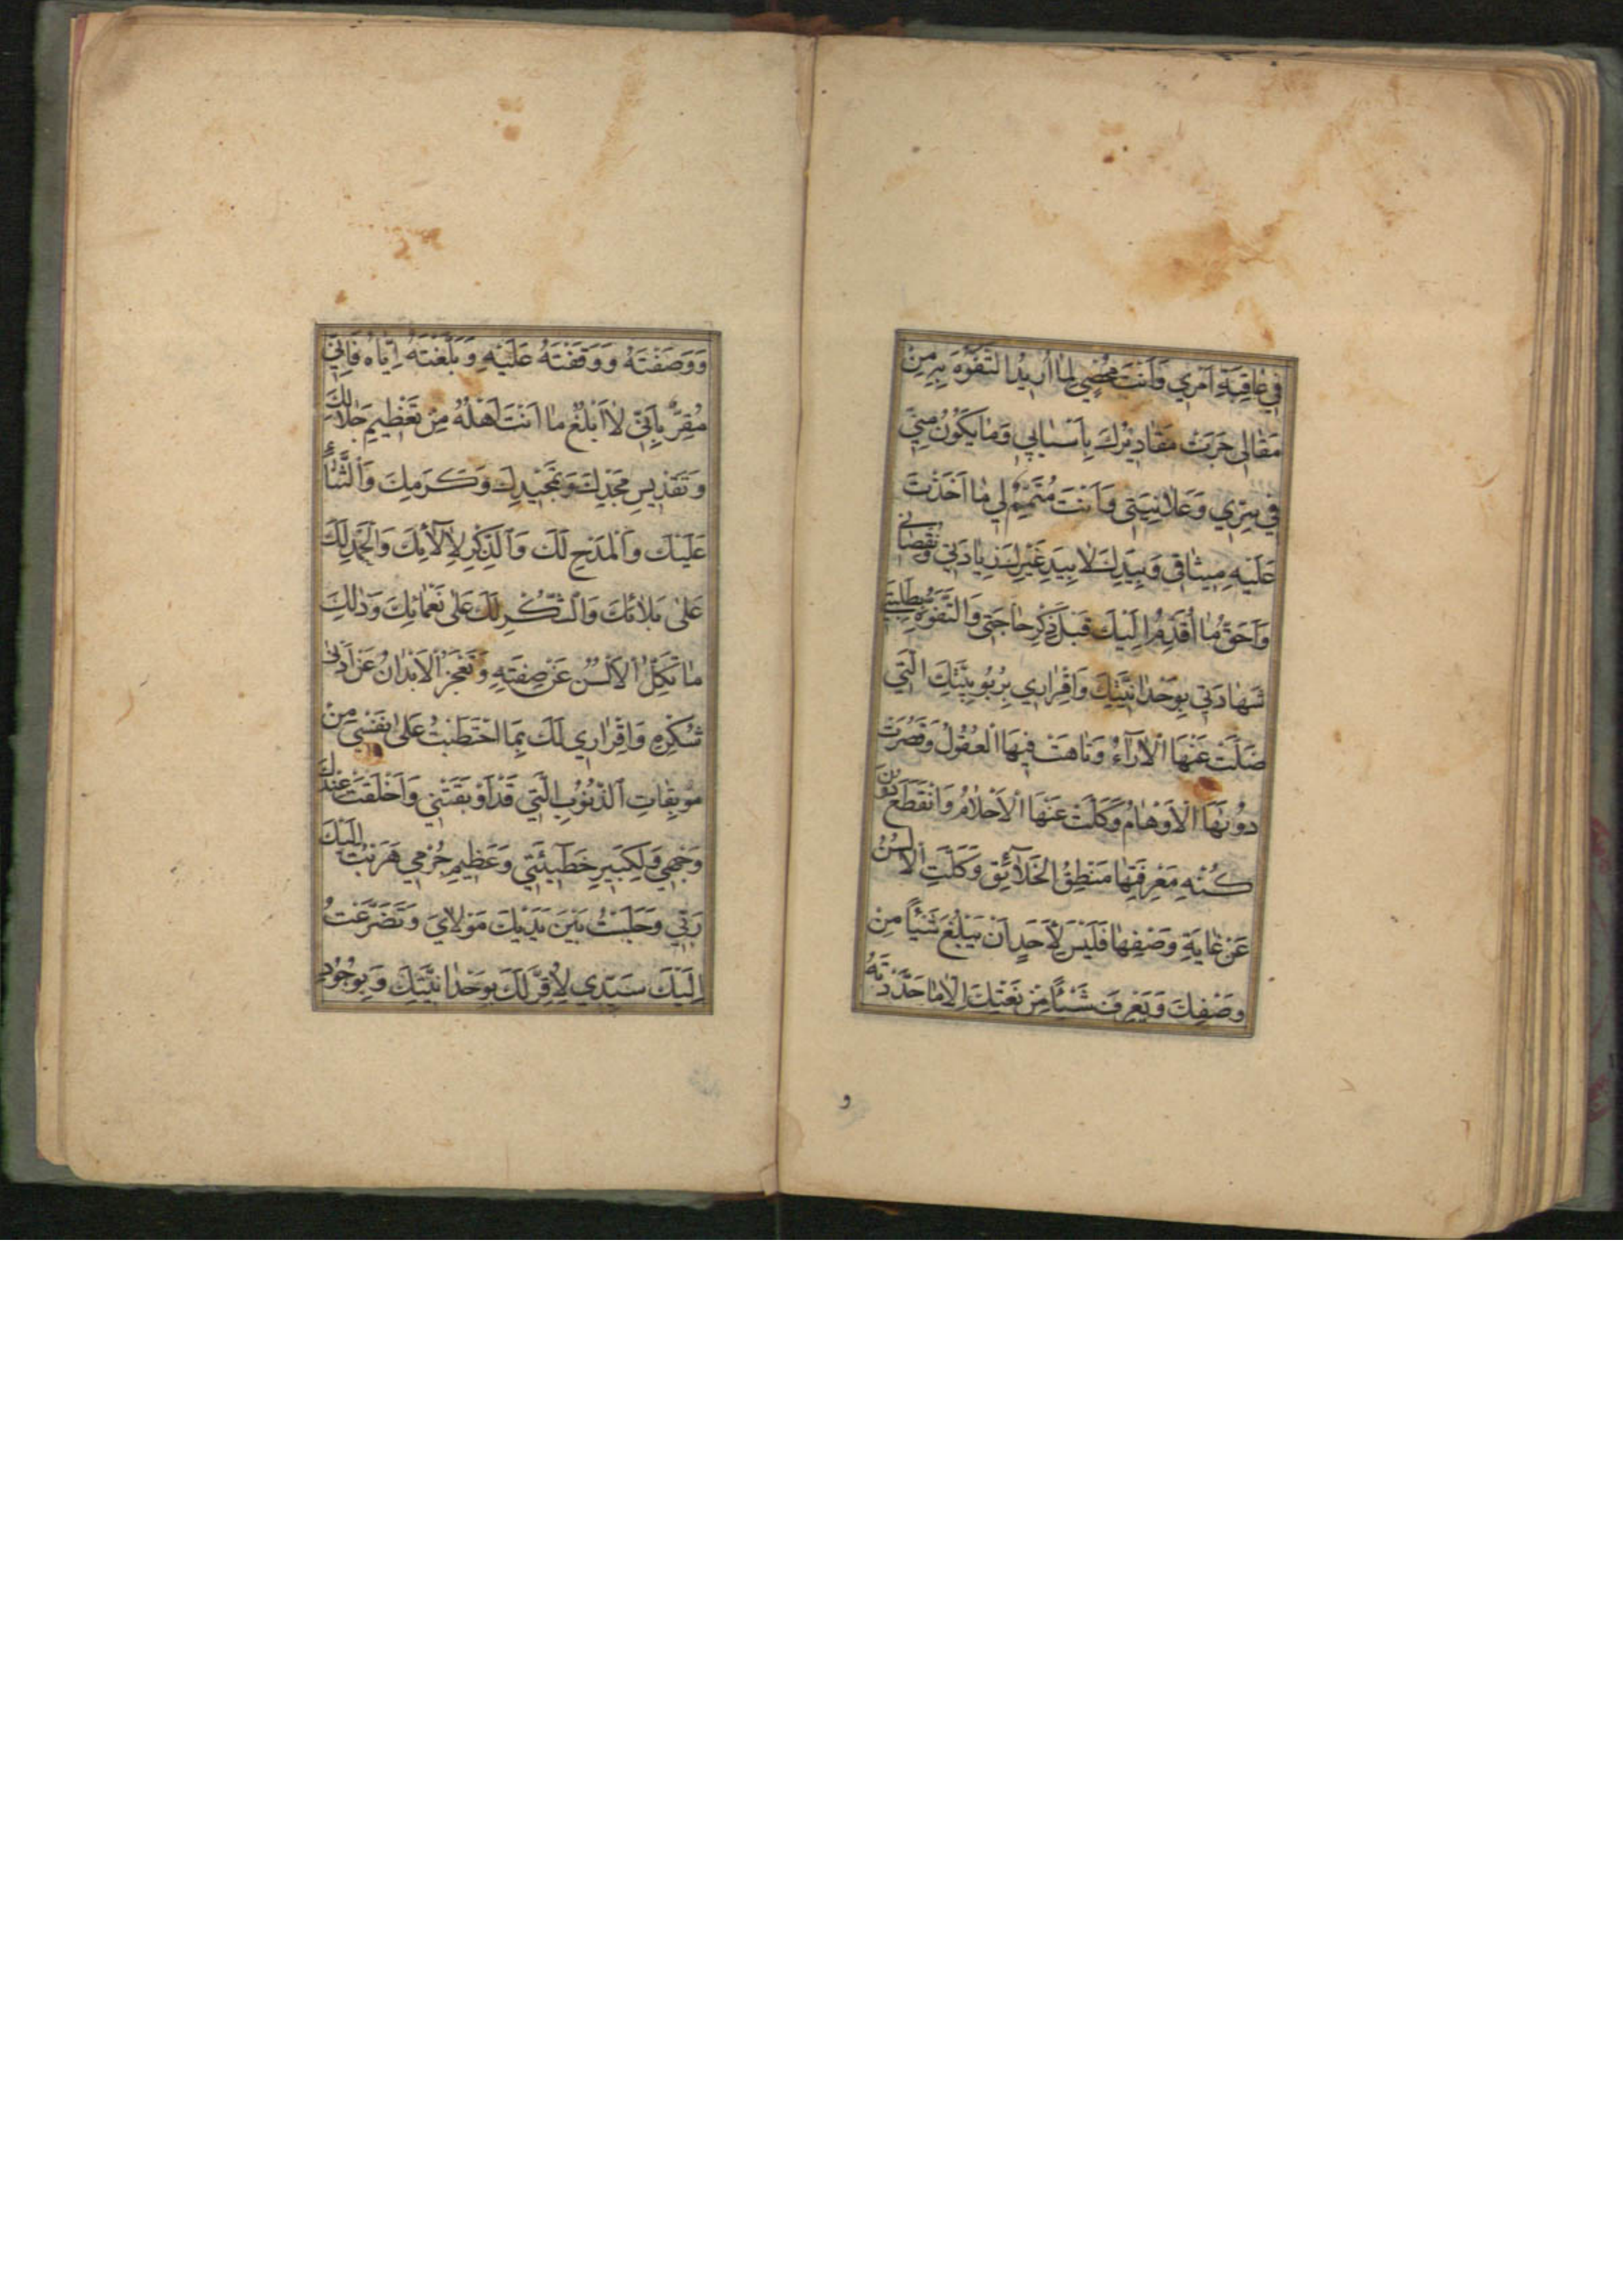 في عٰاقِبَةِ اَمْري وَاَنْتَ مُحْصي لِمٰا اُريدُ التَّفَوُّهَ بِهِ مِنْ
مَقٰالي جَرَتْ مَقٰاديرُكَ بِاَسْبٰابي وَمٰا يَكُونُ مِنّي
في سِرّي وَعَلٰانِيَتي وَاَنْتَ مُتَمِّمٌ لي مٰا اَخَذْتَ
عَلَيْهِ ميثٰاقي وَبِيَدِكَ لٰا بِيَدِ غَيْرِكَ زِيٰادَتي وَنُقْصٰاني
وَاَحَقُّ مٰا اُقَدِّمُ اِلَيْكَ قَبْلَ ذِكْرِ حٰاجَتي وَالتَّفَوُّهِ بِطَلِبَتي
شَهٰادَتي بِوَحْدٰانِيَّتِكَ وَاِقْرٰاري بِرُبُوبِيَّتِكَ الَّتي
ضَلَّتْ عَنْهَا الْاٰرٰآءُ وَتٰاهَتْ فيهَا الْعُقُولُ وَقَصُرَتْ
دُونَهَا الْاَوْهٰامُ وَكَلَّتْ عَنْهَا الْاَحْلٰامُ وَانْقَطَعَ دُونَ
كُنْهِ مَعْرِفَتِهٰا مَنْطِقُ الْخَلٰآئِقِ وَكَلَّتِ الْاَلْسُنُ
عَنْ غٰايَةِ وَصْفِهٰا فَلَيْسَ لِاَحَدٍ اَنْ يَبْلُغَ شَيْئًا مِنْ
وَصْفِكَ وَيَعْرِفَ شَيْئًا مِنْ نَعْتِكَ اِلّٰا مٰا حَدَّدْتَهُ
و
وَوَصَفْتَهُ وَوَقَفْتَهُ عَلَيْهِ وَبَلَّغْتَهُ اِيّٰاهُ فَاِنّي
مُقِرٌّ بِاَنّي لٰا اَبْلُغُ مٰا اَنْتَ اَهْلُهُ مِنْ تَعْظيمِ جَلٰالِكَ
وَتَقْديسِ مَجْدِكَ وَتَمْجيدِكَ وَكَرَمِكَ وَالثَّنٰاءِ
عَلَيْكَ وَالْمَدْحِ لَكَ وَالذِّكْرِ لِاٰلٰائِكَ وَالْحَمْدِ لَكَ
عَلٰى بَلٰائِكَ وَالشُّكْرِ لَكَ عَلٰى نَعْمٰائِكَ وَذٰلِكَ
مٰا تَكِلُّ الْاَلْسُنُ عَنْ صِفَتِهِ وَتَعْجَزُ الْاَبْدٰانُ عَنْ اَدْنٰى
شُكْرِهِ وَاِقْرٰاري لَكَ بِمَا احْتَطَبْتُ عَلٰى نَفْسي مِنْ
مُوبِقٰاتِ الذُّنُوبِ الَّتي قَدْ اَوْبَقَتْني وَاَخْلَقَتْ عِنْدَكَ
وَجْهي وَلِكَبيرِ خَطيئَتي وَعَظيمِ جُرْمي هَرَبْتُ اِلَيْكَ
رَبّي وَجَلَسْتُ بَيْنَ يَدَيْكَ مَوْلٰايَ وَتَضَرَّعْتُ
اِلَيْكَ سَيِّدي لِاُقِرَّ لَكَ بِوَحْدٰانِيَّتِكَ وَبِوُجُودِ